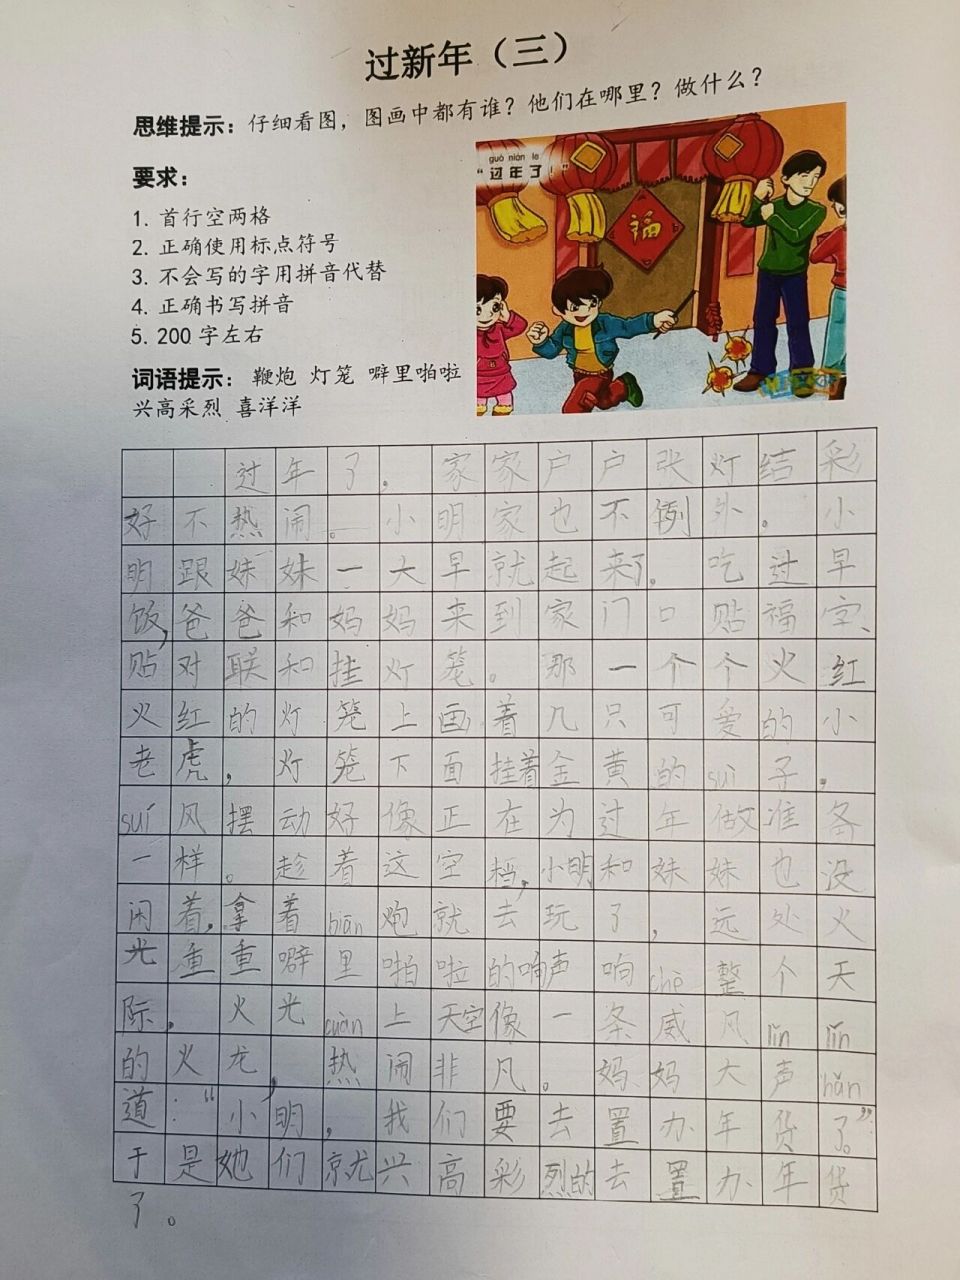 过新年（三）
思维提示：仔细看图，图画中都有谁？他们在哪里？做什么？
要求：
1. 首行空两格
2. 正确使用标点符号
3. 不会写的字用拼音代替
4. 正确书写拼音
5. 200 字左右
词语提示：鞭炮 灯笼 噼里啪啦
兴高采烈 喜洋洋
guò nián le
“过年了！”
福
过年了，家家户户张灯结彩
好不热闹。小明家也不例外。小
明跟妹妹一大早就起来了。吃过早
饭，爸爸和妈妈来到家门口贴福字、
贴对联和挂灯笼。那一个个火红
火红的灯笼上画着几只可爱的小
老虎，灯笼下面挂着金黄的suì子，
suí风摆动好像正在为过年做准备
一样。趁着这空档，小明和妹妹也没
闲着，拿着biān炮就去玩了，远处火
光重重噼里啪啦的响声响chè整个天
际，火光cuàn上天空像一条威风lǐn lǐn
的火龙，热闹非凡。妈妈大声hǎn
道：“小明，我们要去置办年货了。”
于是她们就兴高彩烈的去置办年货
了。